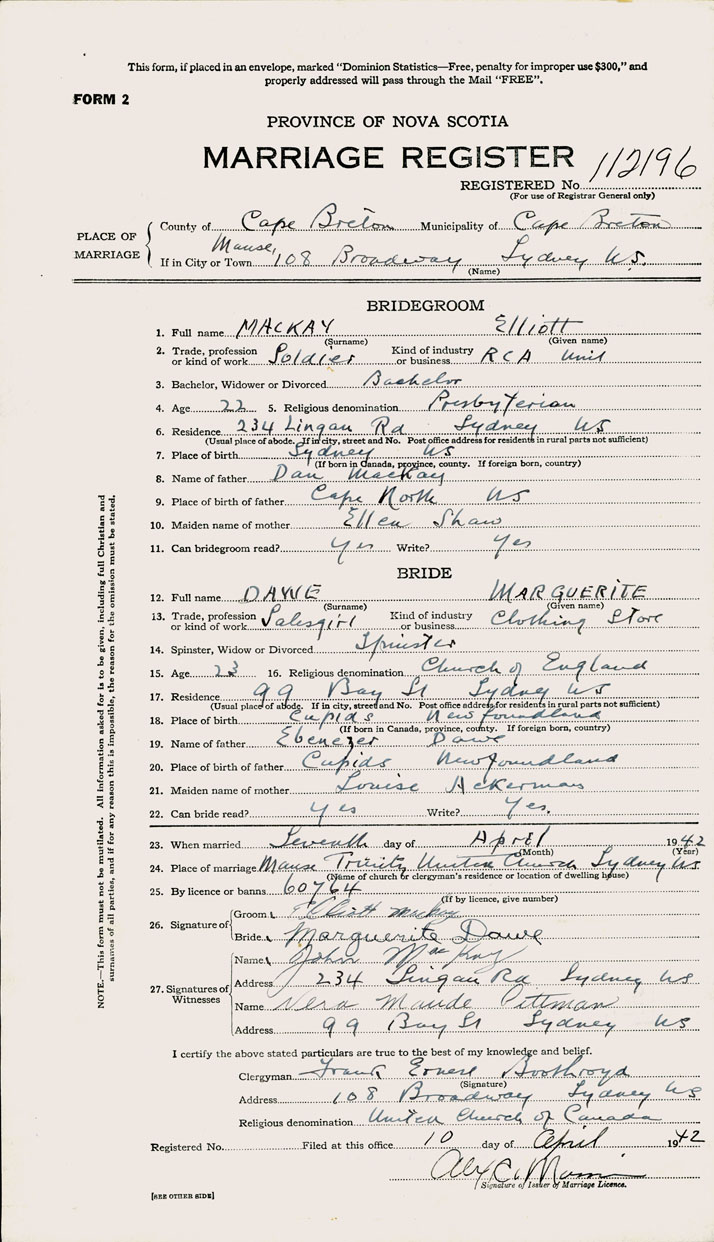 This form, if placed in an envelope, marked "Dominion Statistics—Free, penalty for improper use $300," and
properly addressed will pass through the Mail "FREE".
FORM 2
PROVINCE OF NOVA SCOTIA
MARRIAGE REGISTER 112196
REGISTERED No.
(For use of Registrar General only)
PLACE OF MARRIAGE
County of Cape Breton Municipality of Cape Breton
Manse,
If in City or Town 108 Broadway Sydney NS.
(Name)
BRIDEGROOM
1. Full name MACKAY Elliott
(Surname) (Given name)
2. Trade, profession or kind of work Soldier Kind of industry or business RCA Unit
3. Bachelor, Widower or Divorced Bachelor
4. Age 22 5. Religious denomination Presbyterian
6. Residence 234 Lingan Rd Sydney NS
(Usual place of abode. If in city, street and No. Post office address for residents in rural parts not sufficient)
7. Place of birth Sydney NS
(If born in Canada, province, county. If foreign born, country)
8. Name of father Dan MacKay
9. Place of birth of father Cape North NS
10. Maiden name of mother Ellen Shaw
11. Can bridegroom read? Yes Write? Yes
BRIDE
12. Full name DAWE MARGUERITE
(Surname) (Given name)
13. Trade, profession or kind of work Salesgirl Kind of industry or business Clothing Store
14. Spinster, Widow or Divorced Spinster
15. Age 23 16. Religious denomination Church of England
17. Residence 99 Bay St Sydney NS
(Usual place of abode. If in city, street and No. Post office address for residents in rural parts not sufficient)
18. Place of birth Cupids Newfoundland
(If born in Canada, province, county. If foreign born, country)
19. Name of father Ebenezer Dawe
20. Place of birth of father Cupids Newfoundland
21. Maiden name of mother Louise Ackerman
22. Can bride read? Yes Write? Yes.
23. When married Seventh day of April 1942
(Month) (Year)
24. Place of marriage Manse Trinity United Church Sydney NS
(Name of church or clergyman's residence or location of dwelling house)
25. By licence or banns 60764
(If by licence, give number)
26. Signature of
Groom Elliott Mackay
Bride Marguerite Dawe
27. Signatures of Witnesses
Name John MacKay
Address 234 Lingan Rd Sydney NS
Name Vera Maude Pittman
Address 99 Bay St Sydney NS
I certify the above stated particulars are true to the best of my knowledge and belief.
Clergyman Frank Ernest Boothroyd
(Signature)
Address 108 Broadway Sydney NS
Religious denomination United Church of Canada
Registered No. Filed at this office 10 day of April 1942
Alex C.
Signature of Issuer of Marriage Licence.
[SEE OTHER SIDE]
NOTE.—This form must not be mutilated. All information asked for is to be given, including full Christian and
surnames of all parties, and if for any reason this is impossible, the reason for the omission must be stated.